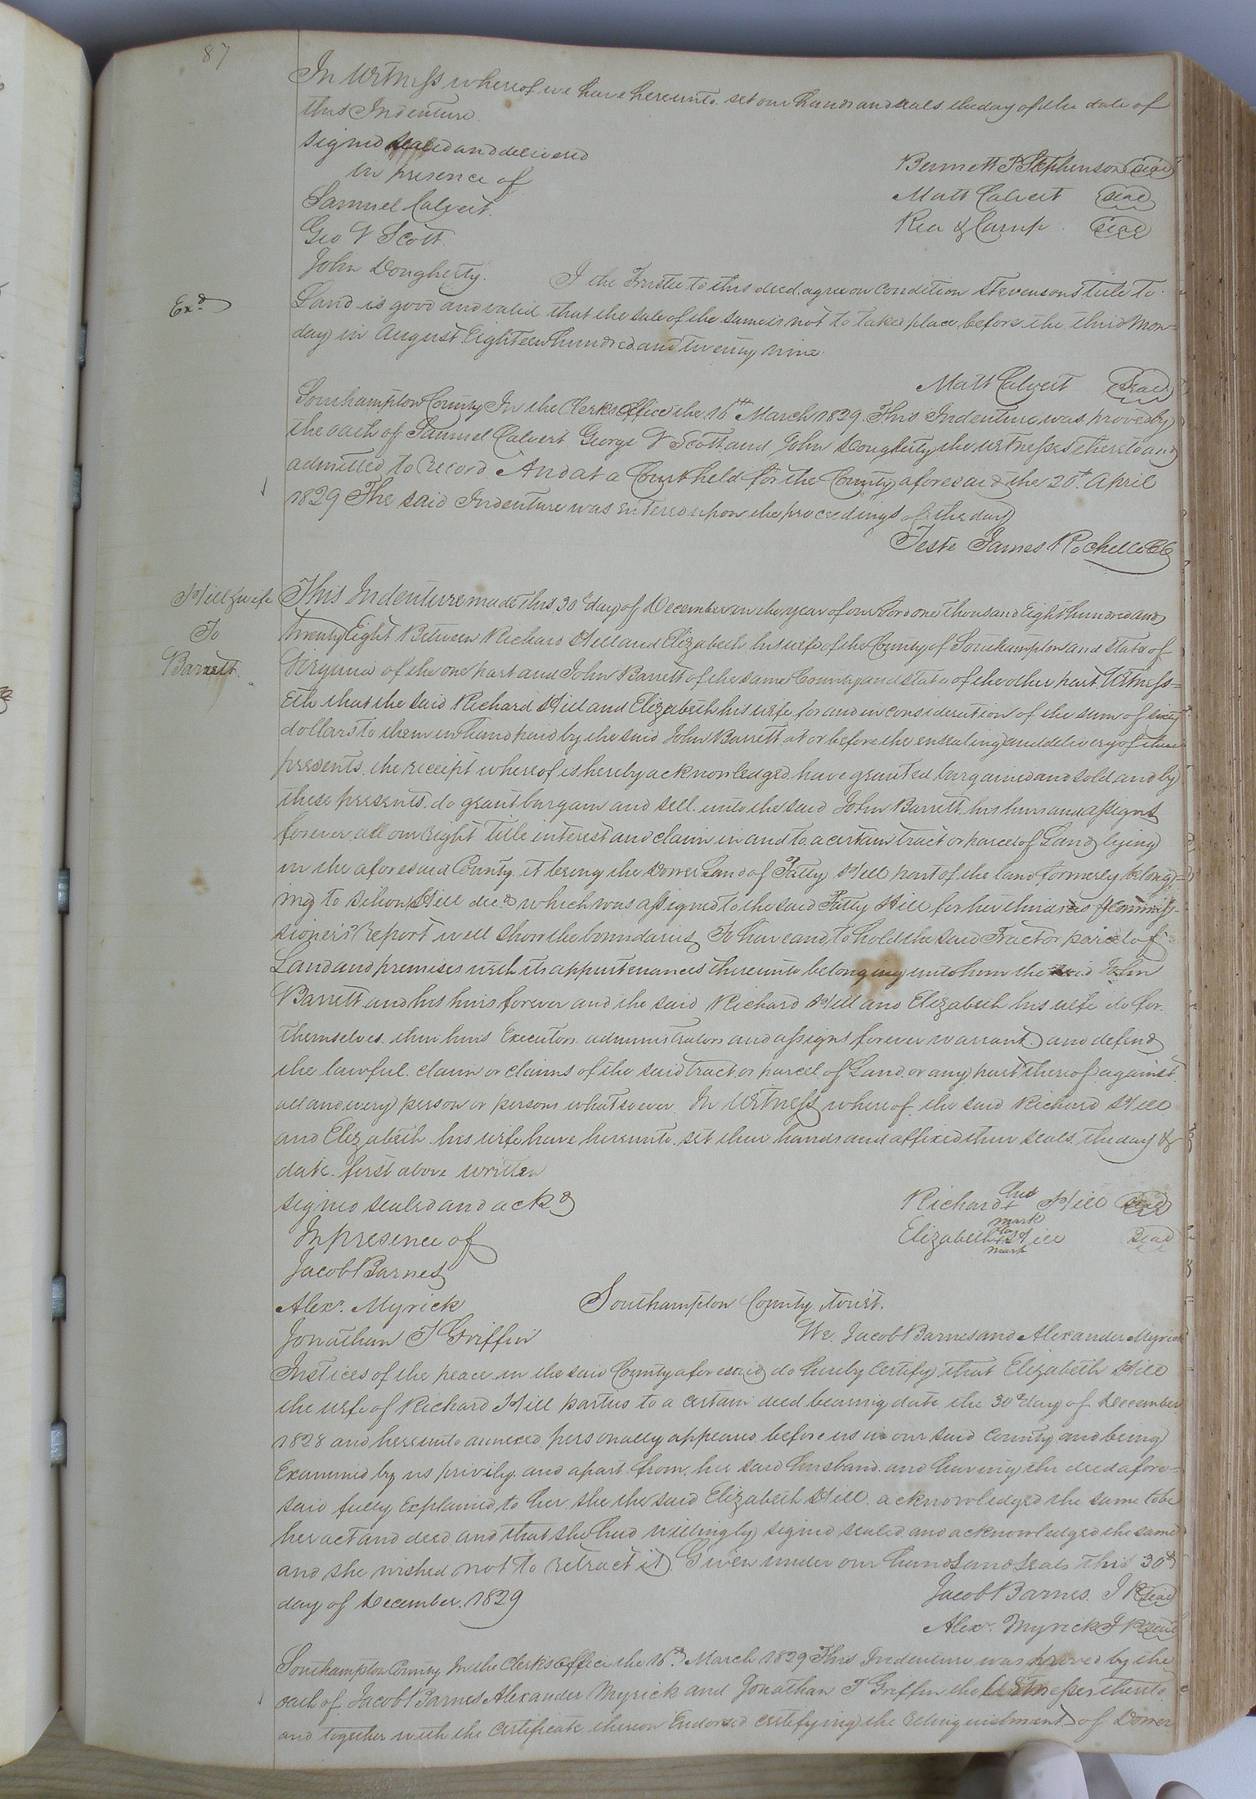 87
In Witness whereof we have hereunto set our hands and seals the day of the date of
this Indenture
signed sealed and delivered
in presence of
Bennett P Stephenson seal
Samuel Calvert
Matt Calvert seal
Geo V Scott
Rea & Camp seal
John Dougherty. I the Trustee to this deed, agree on condition Stevensons title to
Exd
Land is good and valid that the sale of the same is not to take place before the third Mon=
day in August Eighteen hundred and twenty nine
Matt Calvert seal
Southampton County In the Clerks Office the 16th March 1829 This Indenture was proved by
the oath of Samuel Calvert George V Scott and John Dougherty the witnesses thereto and
admitted to Record And at a Court held for the County aforesaid the 20th April
1829 The said Indenture was entered upon the proceedings of the day
Teste James Rochelle CC
Hill & wife
To
Barrett
This Indenture made this 30th day of December in the year of our Lord one thousand Eight hundred and
twenty Eight Between Richard Hill and Elizabeth his wife of the County of Southampton and State of
Virginia of the one part and John Barrett of the same County and state of the other part Witness=
eth that the said Richard Hill and Elizabeth his wife for and in consideration of the sum of sixty
dollars to them in hand paid by the said John Barrett at or before the ensealing and delivery of these
presents, the receipt whereof is hereby acknowledged, have granted bargained and sold and by
these presents do grant bargain and sell unto the said John Barrett his heirs and assigns
forever all our right title interest and claim in and to a certain tract or parcel of Land lying
in the aforesaid County it being the Dower Land of Patty Hill part of the land formerly belong=
ing to Sihon Hill decd which was assigned to the said Patty Hill for her thirds as Commis-
sioners Report will show the boundaries To have and to hold the said Tract or parcel of
Land and premises with its appurtenances thereunto belonging unto him the said John
Barrett and his heirs forever and the said Richard Hill and Elizabeth his wife do for
themselves their heirs Executors administrators and assigns forever warrant and defend
the lawful claim or claims of the said tract or parcel of Land or any part thereof against
all and every person or persons whatsoever In Witness whereof the said Richard Hill
and Elizabeth his wife have hereunto set their hands and affixed their seals the day &
date first above written
signed sealed and ackd
Richard his + mark Hill seal
In presence of
Elizabeth her + mark Hill seal
Jacob Barnes
Alexr. Myrick
Southampton County towit.
Jonathan T Griffin
We Jacob Barnes and Alexander Myrick
Justices of the peace in the said County aforesaid do hereby Certify that Elizabeth Hill
the wife of Richard Hill parties to a certain deed bearing date the 30th day of December
1828 and hereunto annexed personally appeared before us in our said County and being
Examined by us privily and apart from her said husband and having the deed afore=
said fully Explained to her she the said Elizabeth Hill acknowledged the same to be
her act and deed and that she had willingly signed sealed and acknowledged the same
and she wished not to retract it Given under our hands and seals this 30th
day of December 1829
Jacob Barnes J P seal
Alexr. Myrick J P seal
Southampton County In the Clerks Office the 16th March 1829 This Indenture was proved by the
oath of Jacob Barnes Alexander Myrick and Jonathan T Griffin the Witnesses thereto
and together with the Certificate thereon Endorsed certifying the relinquishment of Dower